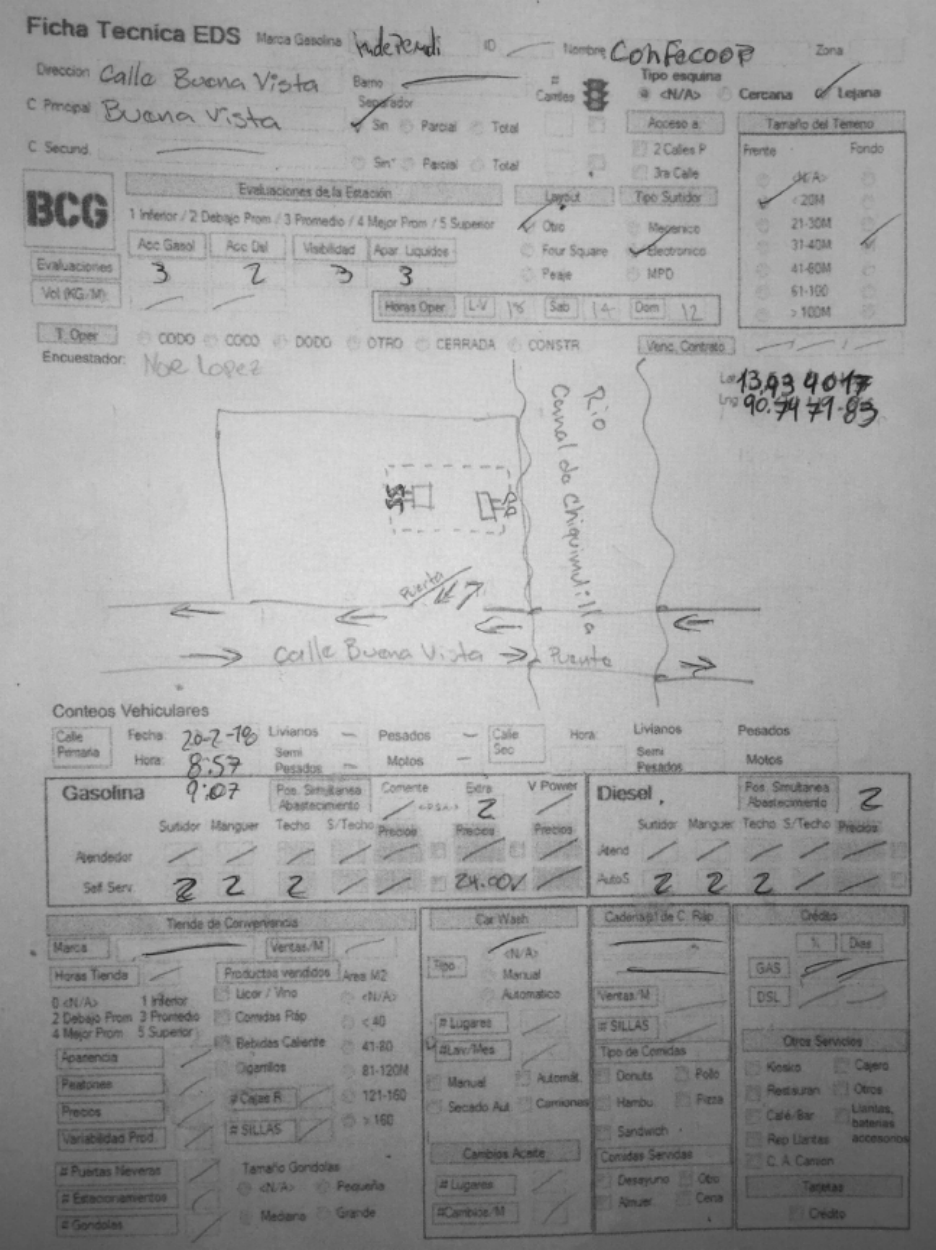 Ficha Tecnica EDS Marca Gasolina Independi ID Nombre Confecoop Zona
Direccion Calle Buena Vista Barrio # Carriles Tipo esquina
<N/A> Cercana Lejana
C Principal Buena Vista Separador
Sin Parcial Total Acceso a: Tamaño del Terreno
C Secund. Sin Parcial Total 2 Calles P Frente Fondo
3ra Calle <N/A>
BCG Evaluaciones de la Estación Layout Tipo Surtidor < 20M
1 Inferior / 2 Debajo Prom / 3 Promedio / 4 Mejor Prom / 5 Superior Otro Mecanico 21-30M
Acc Gasol Acc Dsl Visibilidad Apar. Liquidos Four Square Electronico 31-40M
Evaluaciones 3 2 3 3 Peaje MPD 41-60M
Vol (KG/M) Horas Oper L-V 18 Sab 14 Dom 12 61-100
> 100M
T. Oper CODO COCO DODO OTRO CERRADA CONSTR Venc. Contrato
Encuestador: Noe Lopez
Lat 13.934017
Lng 90.747183
Rio
Canal de Chiquimulilla
Puerta
Calle Buena Vista Puente
Conteos Vehiculares
Calle Primaria Fecha: 20-2-18 Livianos Pesados Calle Sec Hora: Livianos Pesados
Hora: 8:57 Semi Pesados Motos Semi Pesados Motos
Gasolina 9:07 Pos. Simultanea Abastecimiento Corriente Extra 2 V Power Diesel Pos. Simultanea Abastecimiento 2
Surtidor Manguer Techo S/Techo Precios Precios Precios Surtidor Manguer Techo S/Techo Precios
Atendedor Atend
Self Serv. 2 2 2 24.00 AutoS 2 2 2
Tienda de Conveniencia Car Wash Cadena(s) de C. Ráp. Crédito
Marca Ventas/M <N/A> % Dias
Horas Tienda Productos vendidos Area M2 Tipo Manual GAS
0 <N/A> 1 Inferior Licor / Vino <N/A> Automatico Ventas/M DSL
2 Debajo Prom 3 Promedio Comidas Ráp < 40 # Lugares # SILLAS
4 Mejor Prom 5 Superior Bebidas Caliente 41-80 #Lav/Mes Tipo de Comidas Otros Servicios
Apariencia Cigarrillos 81-120M Manual Automát. Donuts Pollo Kiosko Cajero
Peatones # Cajas R. 121-160 Secado Aut Camiones Hambu Pizza Restauran Otros
Precios # SILLAS > 160 Sandwich Café/Bar Llantas, baterias accesorios
Variabilidad Prod. Cambios Aceite Comidas Servidas Rep Llantas
# Puertas Neveras Tamaño Gondolas # Lugares Desayuno Otro C. A. Camion
# Estacionamientos <N/A> Pequeña #Cambios/M Almuer Cena Tarjetas
# Gondolas Mediana Grande Crédito